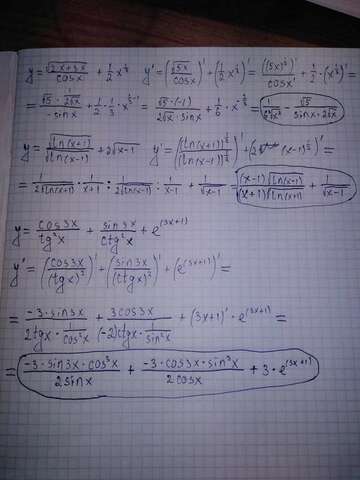 y = √(2x+3x)/cosx + 1/2 x^(1/3) y' = (√(5x)/cosx)' + (1/2 x^(1/3))' = ((5x)^(1/2))'/cosx' + 1/2 · (x^(1/3))' =
= (√5 · 1/(2√x))/(-sinx) + 1/2 · 1/3 · x^(1/3-1) = √5·(-1)/(2√x · sinx) + 1/6 · x^(-2/3) = 1/(6∛x²) - √5/(sinx·2√x)
y = √(ln(x+1))/√(ln(x-1)) + 2√(x-1) y' = ((ln(x+1))^(1/2)/(ln(x-1))^(1/2))' + (2 (x-1)^(1/2))' =
= 1/(2√(ln(x+1))) · 1/(x+1) : 1/(2√(ln(x-1))) : 1/(x-1) + 1/√(x-1) = (x-1)√(ln(x-1))/((x+1)√(ln(x+1))) + 1/√(x-1)
y = cos3x/tg²x + sin3x/ctg²x + e^(3x+1)
y' = (cos3x/(tgx)²)' + (sin3x/(ctgx)²)' + (e^(3x+1))' =
= -3·sin3x/(2tgx · 1/cos²x) + 3cos3x/((-2)ctgx · 1/sin²x) + (3x+1)' · e^(3x+1) =
= -3·sin3x·cos³x/(2sinx) + -3·cos3x·sin³x/(2cosx) + 3·e^(3x+1)